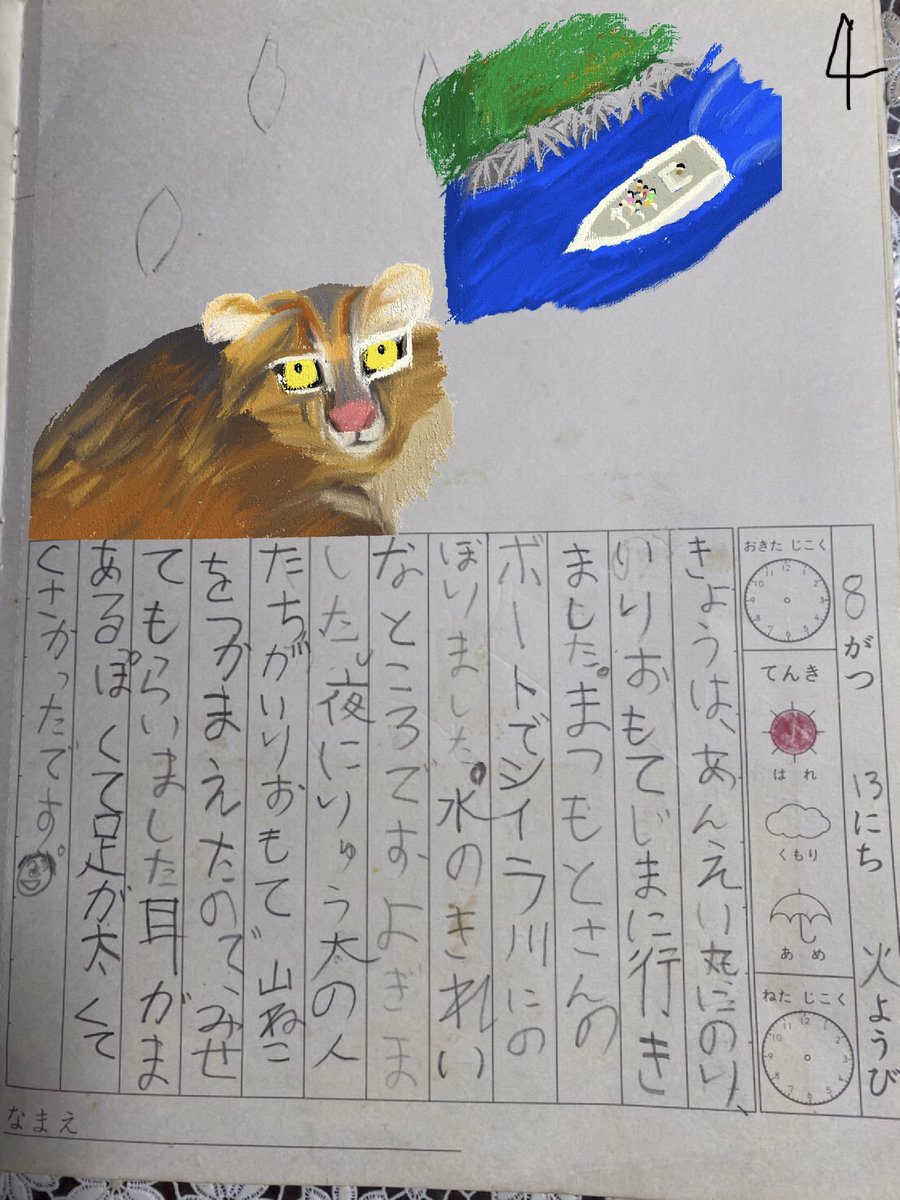 4
8がつ 13にち 火ようび
おきた じこく
てんき
はれ
くもり
あめ
ねた じこく
きょうは、あんえい丸にのり、
いりおもてじまに行き
ました。まつもとさんの
ボートでシイラ川にの
ぼりました。水のきれい
なところでおよぎま
した。夜にりゅう太の人
たちがいりおもて山ねこ
をつかまえたので、みせ
てもらいました耳がま
あるぽくて足が太くて
くさかったです。
なまえ